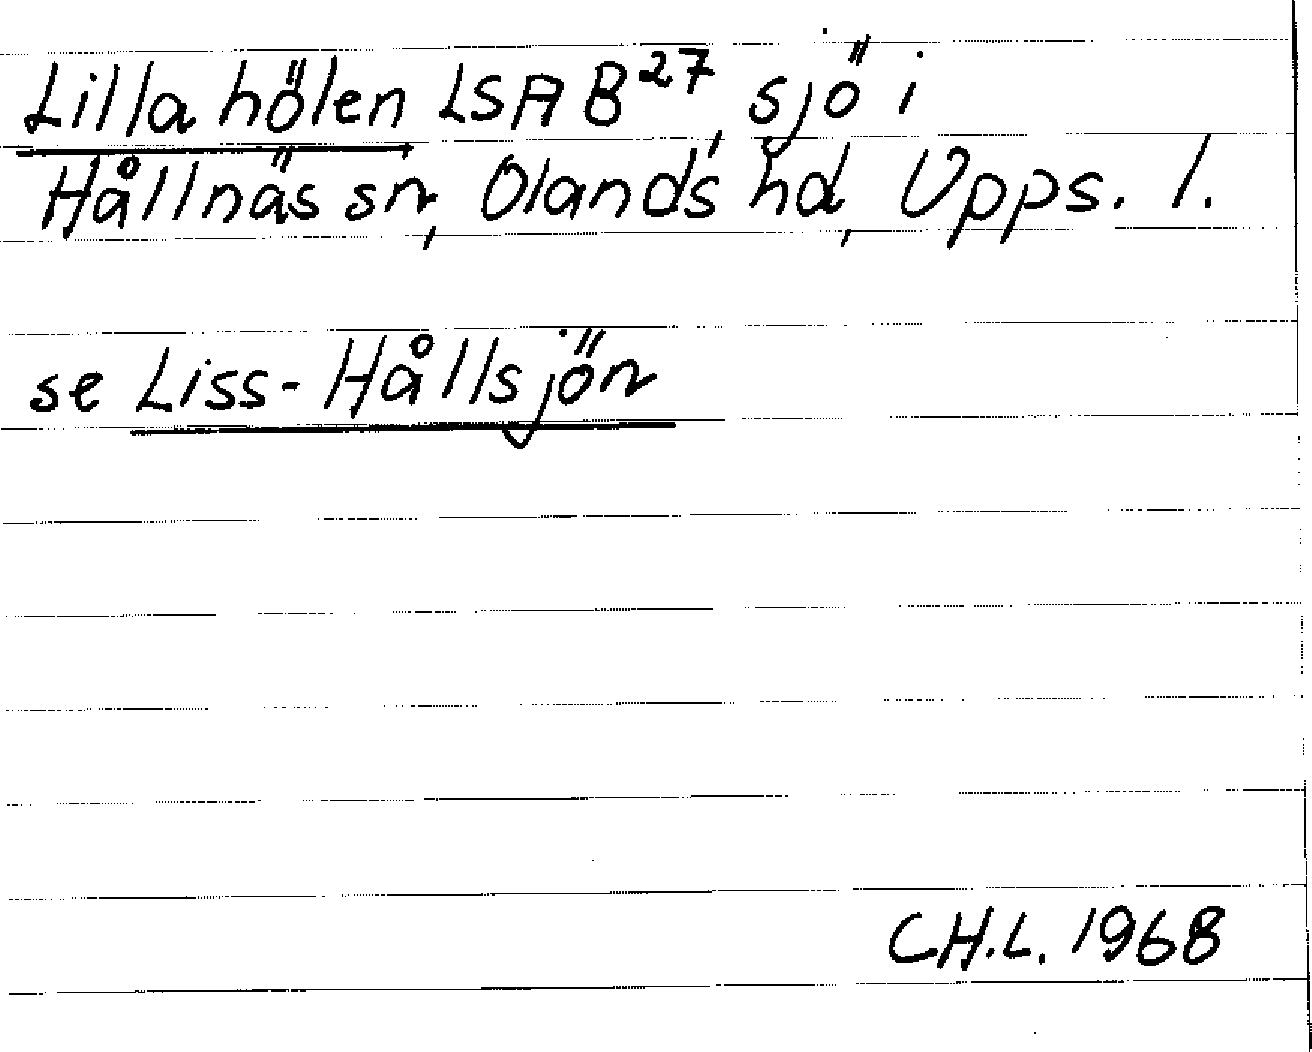 Lilla hölen LSA B²⁷, sjö i
Hållnäs sn, Olands hd, Upps. l.
se Liss-Hållsjön
CH.L. 1968